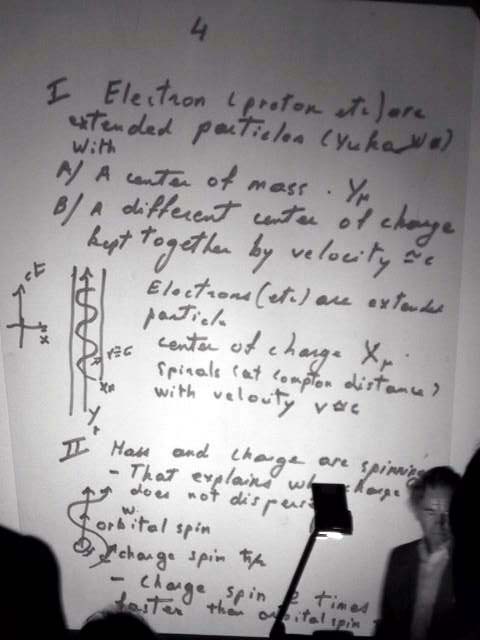 4
I Electron (proton etc) are
extended particles (Yukawa)
with
A/ A center of mass . Yμ
B/ A different center of charge
kept together by velocity ≃c
ct
x
v≅c
Xμ
Yμ
Electrons (etc) are extended
particle
center of charge Xμ
spirals (at compton distance)
with velocity v≃c
II Mass and charge are spinning
- That explains why charge
does not disperse
orbital spin
charge spin
- Charge spin 2 times
faster than orbital spin